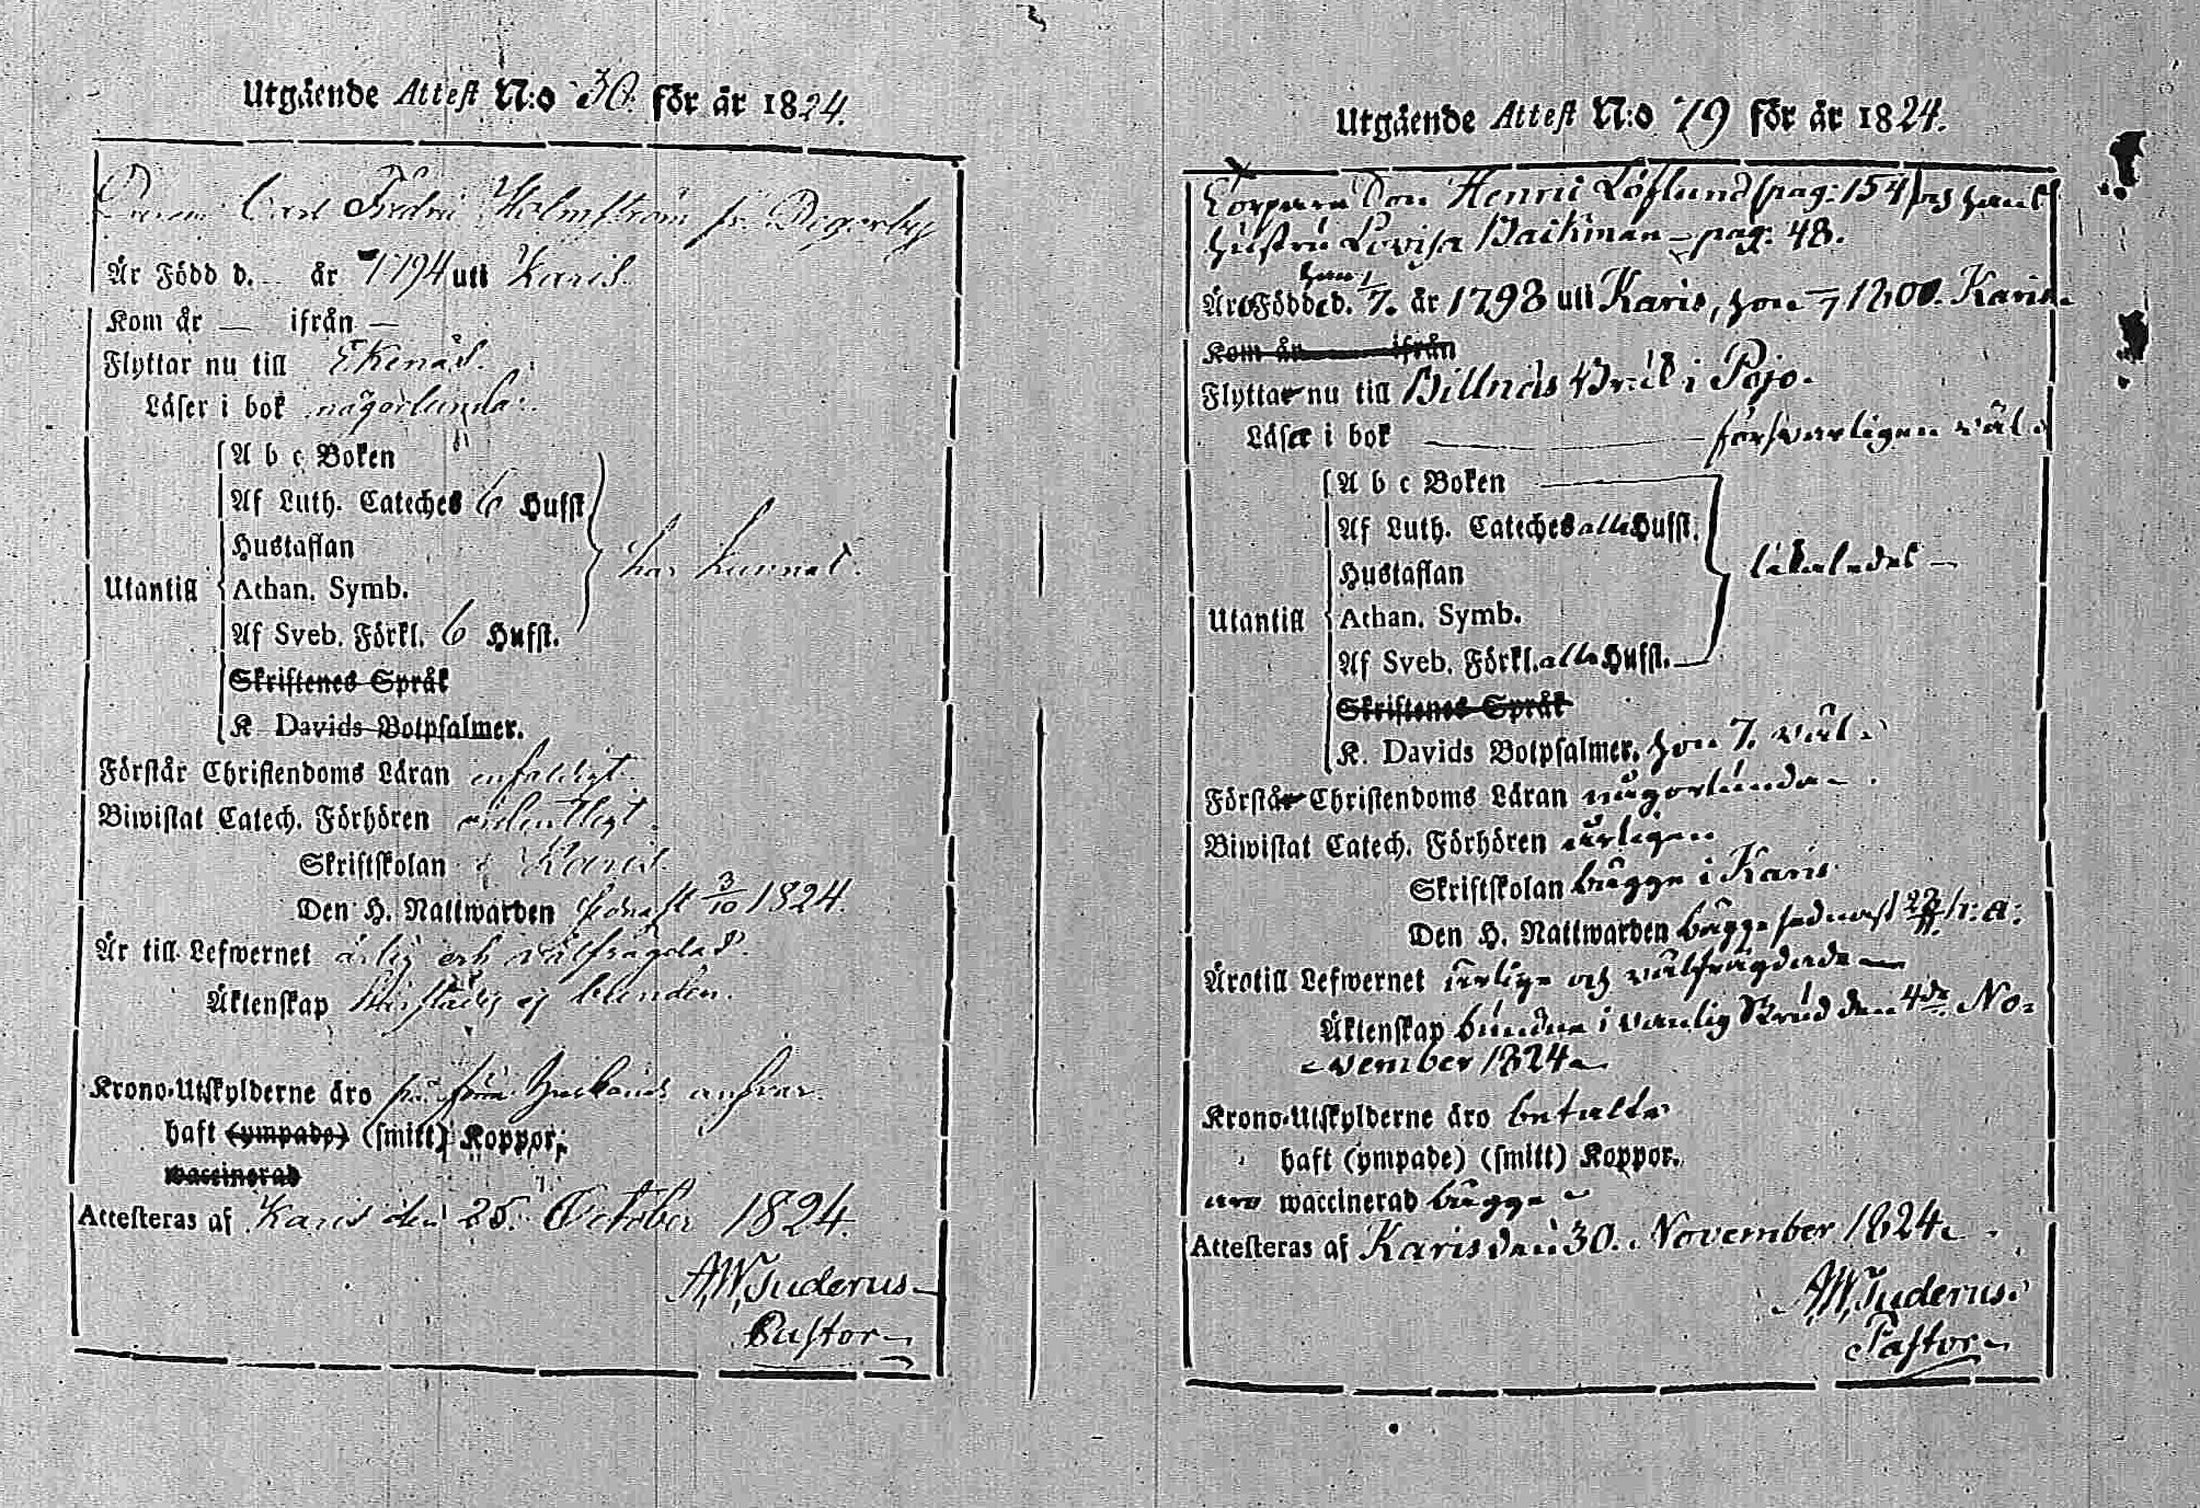 Utgående Attest N:o 30. för år 1824.
Carl Fredric Holmström fr. Degerby
Är Född d. — år 1794 uti Karis.
Kom år — ifrån —
Flyttar nu till Ekenäs.
Läser i bok någorlunda.
A b c Boken
Af Luth. Cateches 6 Hufst
Hustaflan
har kunnat.
Utantill
Athan. Symb.
Af Sveb. Förkl. 6 Hufst.
Skriftenes Språk
K Davids Botpsalmer.
Förstår Christendoms Läran enfaldigt.
Biwistat Catech. Förhören ordentligt.
Skriftskolan i Karis.
Den H. Nattwarden sednast 3/10 1824.
Är till Lefwernet ärlig och välfrägdad.
Äktenskap ej bunden.
Krono-Utskylderne äro på ansvar.
haft (ympade) (smitt) Koppor,
waccinerad
Attesteras af Karis den 25. October 1824.
A.W. Juderus
Pastor
Utgående Attest N:o 79 för år 1824.
Henric Löflund (pag: 154) och hans
hustru Lovisa Backman – pag: 48.
han
Äro Födde d. 1/7. år 1798 uti Karis, hon – 1800. Karis.
Kom år ifrån
Flyttar nu till Billnäs Bruk i Pojo.
Läser i bok — försvarligen väl.
A b c Boken
Af Luth. Cateches alla Hufst.
Hustaflan
likaledes –
Utantill
Athan. Symb.
Af Sveb. Förkl. alla Hufst.
Skriftenes Språk
K. Davids Botpsalmer. hon 7. väl.
Förstår Christendoms Läran någorlunda.
Biwistat Catech. Förhören årligen
Skriftskolan bägge i Karis
Den H. Nattwarden bägge sednast h: a:
Äro till Lefwernet ärlige och välfrägdade
Äktenskap bundne i vanlig den 4de No-
vember 1824.
Krono-Utskylderne äro betalta
haft (ympade) (smitt) Koppor.
äro waccinerad bägge
Attesteras af Karis den 30. November 1824.
A.W. Juderus.
Pastor